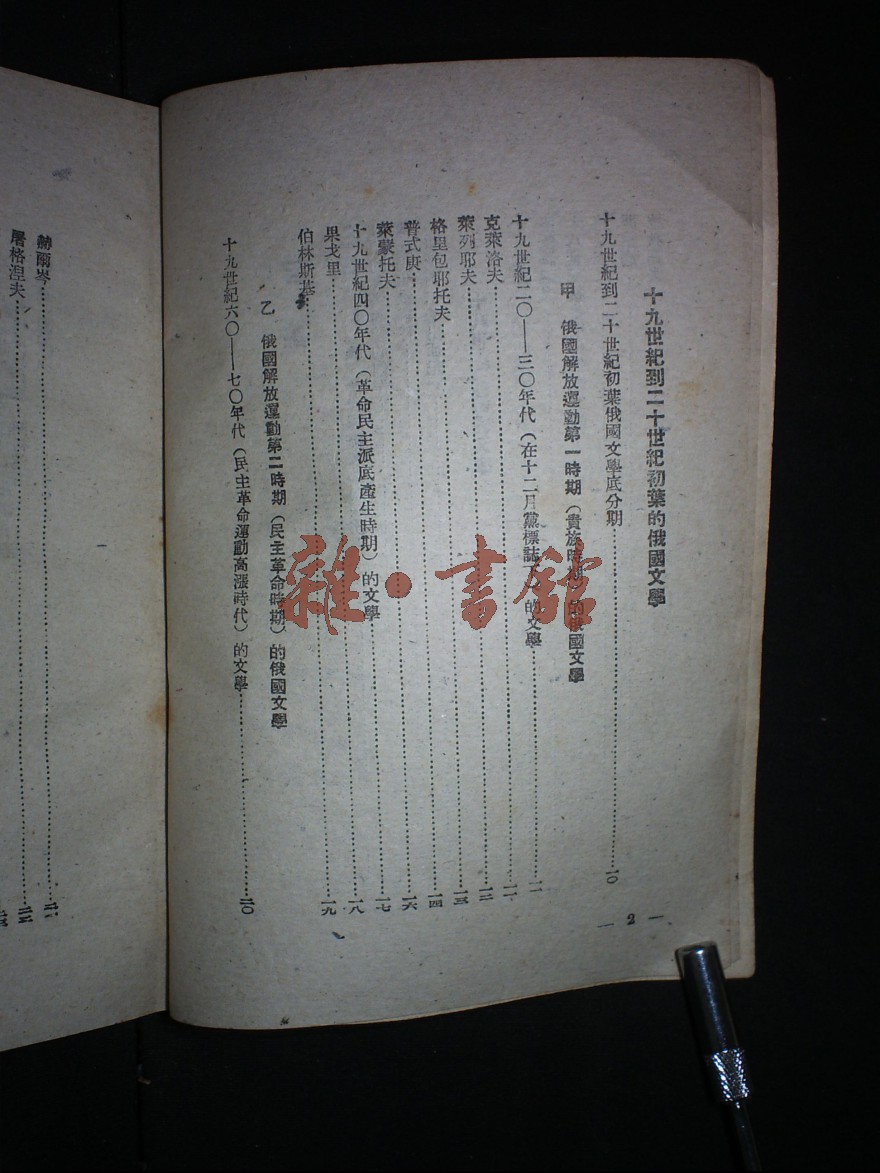 十九世紀到二十世紀初葉的俄國文學
十九世紀到二十世紀初葉俄國文學底分期……一〇
甲 俄國解放運動第一時期(貴族時期)的俄國文學
十九世紀二〇——三〇年代(在十二月黨標誌下)的文學……一一
克萊洛夫……一一
萊列耶夫……一二
格里包耶托夫……一三
普式庚……一四
萊蒙托夫……一六
十九世紀四〇年代(革命民主派底產生時期)的文學……一七
果戈里……一八
伯林斯基……一九
乙 俄國解放運動第二時期(民主革命時期)的俄國文學
十九世紀六〇——七〇年代(民主革命運動高漲時代)的文學……二〇
— 2 —
赫爾岑……二一
屠格涅夫……二二
雜·書館